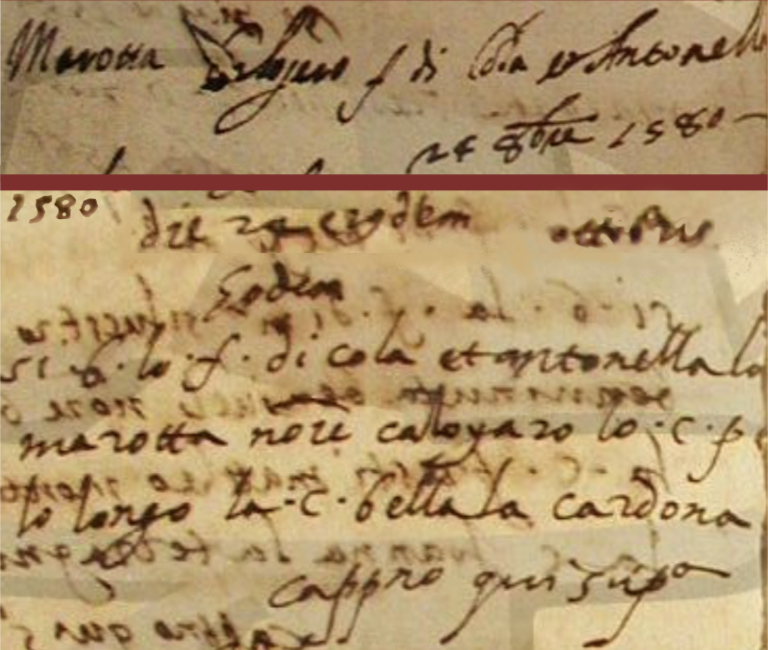 Marotta Calogero f di Cola et Antonella
24 8bre 1580
1580
die 24 eiusdem ottobris
Eodem
si b. lo. f. di cola et antonella la
marotta nõie caloyaro lo. c. p
lo longo la. c. bella la cardona
cappno qui supa